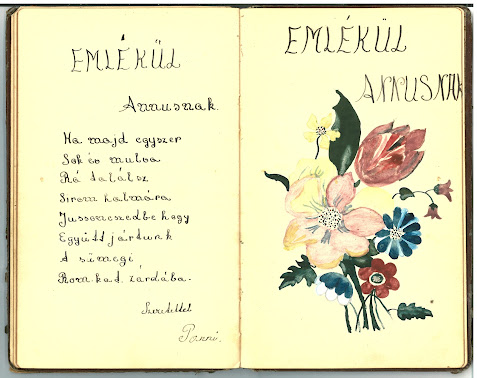 EMLÉKÜL
Annusnak.
Ha majd egyszer
Sok év mulva
Rá találsz
Sirom halmára
Jussoneszedbe hogy
Együtt jártunk
A sümegi
Rom. kat. zárdába.
Szeretettel
Panni.
EMLÉKÜL
ANNUSNAK